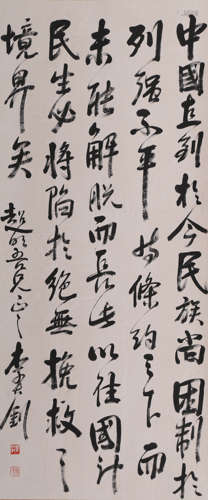 中國直到於今民族尚困制於
列强不平等條約之下而
未能解脱而長此以往國計
民生必將陷於絕無挽救之
境界矣
超明吾兄正之 李大釗